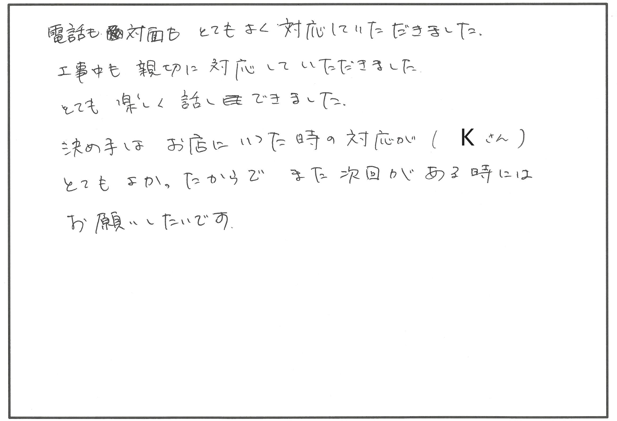 電話も対面も とてもよく対応していただきました.
工事中も 親切に対応していただきました
とても 楽しく 話しできました.
決め手は お店にいった時の対応が( Kさん)
とてもよかったからで また次回がある時には
お願いしたいです.